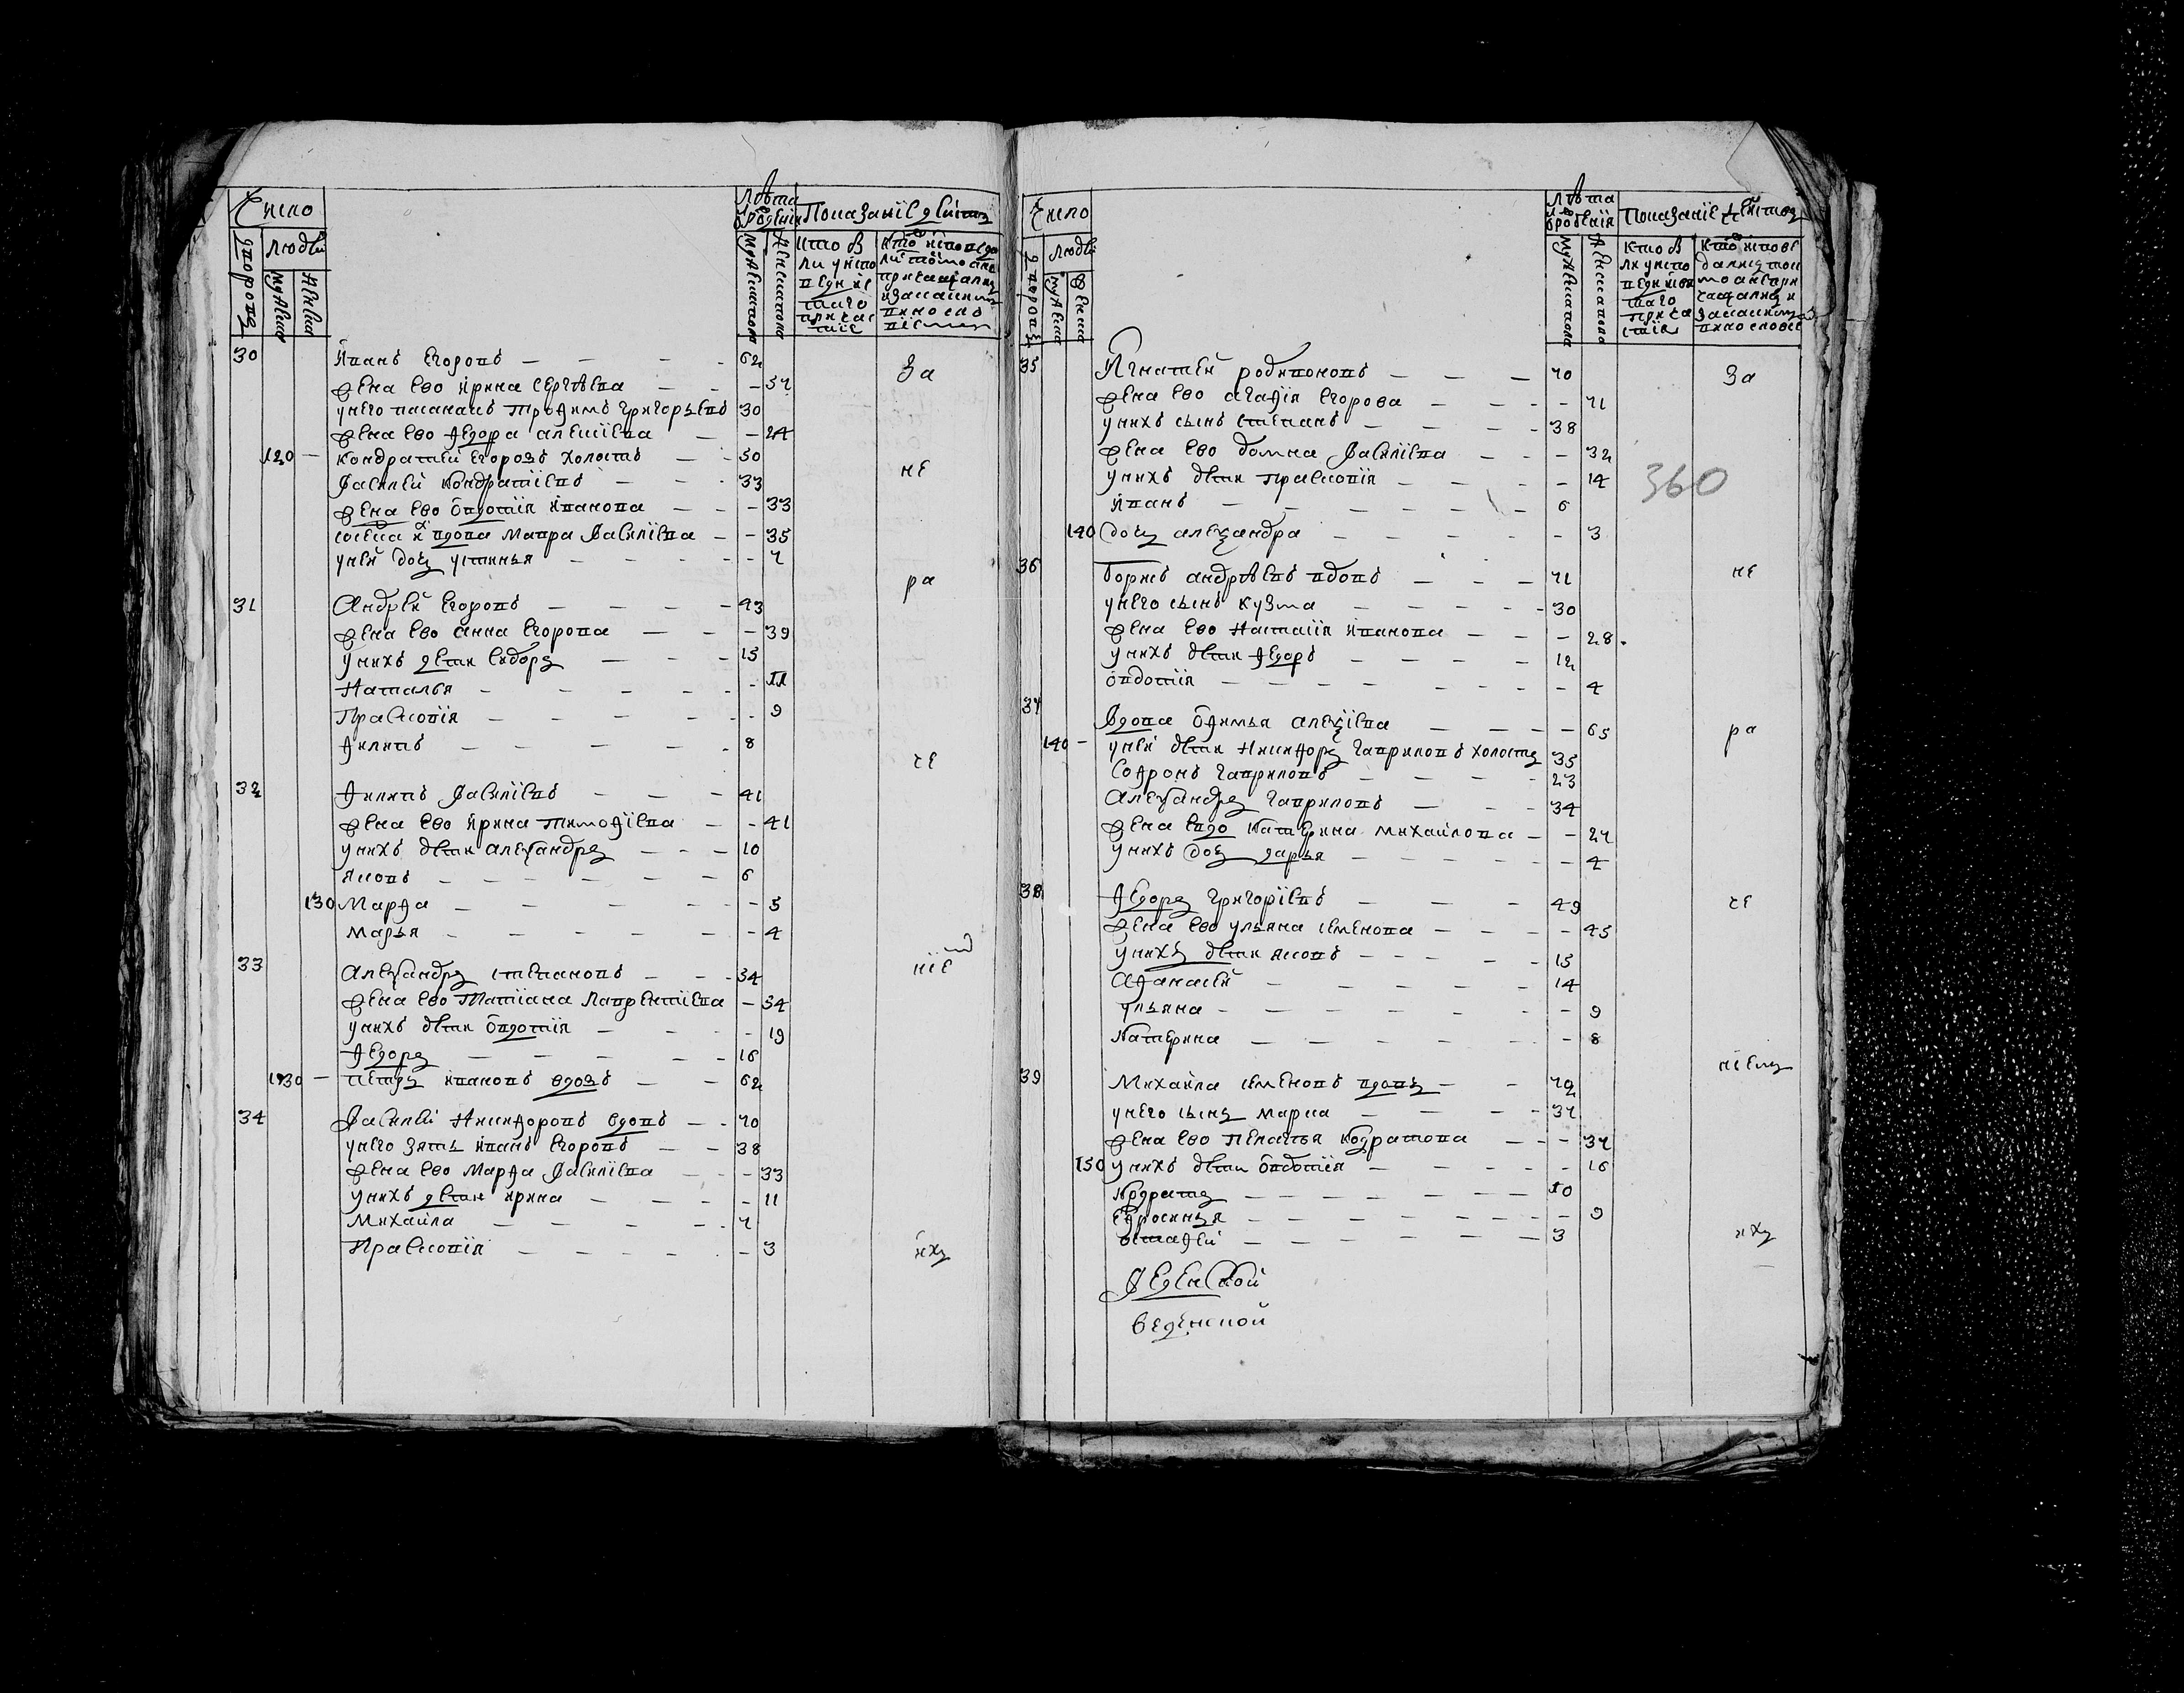 Число
людей
Лѣта
Показаніе
30 Иванъ Егоровъ 62 За
жена ево Ирина Сергѣева 57
у него пасанакъ Трофимъ Григорьевъ 30
жена ево Федора Алексіева 24
120 Кондратей Егоровъ холостъ 50
не
Василей Кондратіевъ 33
жена ево Овдотія Иванова 33
вдова Мавра Василіева 35
у ней дочь Устинья 7
ра
31 Андрей Егоровъ 43
жена ево Анна Егорова 39
у нихъ дети Сидоръ 15
Наталья 11
Прасковія 9
Филипъ 8
че
32 Филипъ Василіевъ 41
жена ево Ирина Тимофіева 41
у нихъ дети Александръ 10
Яковъ 6
130 Марфа 5
Марья 4
33 Александръ Степановъ 34
ніе
жена ево Татіана Лаврентіева 34
у нихъ дети Овдотія 19
Федоръ 16
130 Петръ Ивановъ вдовъ 62
34 Василей Никифоровъ вдовъ 70
у него зять Иванъ Егоровъ 38
жена ево Марфа Василіева 33
у нихъ дети Ирина 11
Михайла 7
Прасковія 3 ихъ
Число
людей
Лѣта
Показаніе
35 Игнатей Родивоновъ 70 За
жена ево Агафія Егорова 71
у нихъ сынъ Степанъ 38
жена ево Домна Василіева 32
у нихъ дети Прасковія 14
360
Иванъ 6
140 дочь Александра 3
36 Борисъ Андрѣевъ вдовъ 71 не
у него сынъ Кузма 30
жена ево Наталія Иванова 28
у нихъ дети Федоръ 12
Овдотія 4
37 Вдова Офимья Алексіева 65 ра
140 у ней дети Никифоръ Гавриловъ холостъ 35
Софронъ Гавриловъ 23
Александръ Гавриловъ 34
жена ево Катерина Михайлова 27
у нихъ дочь Дарья 4
38 Федоръ Григоріевъ 49 че
жена ево Ульяна Семенова 45
у нихъ дети Яковъ 15
Афанасей 14
Ульяна 9
Катерина 8
39 Михайла Семеновъ вдовъ 72
у него сынъ Марка 37
жена ево Пелагья Кодратова 37
150 у нихъ дети Овдотія 16
Кодратъ 10
Ефросинья 9
Остафей 3 ихъ
Веденской
Веденской